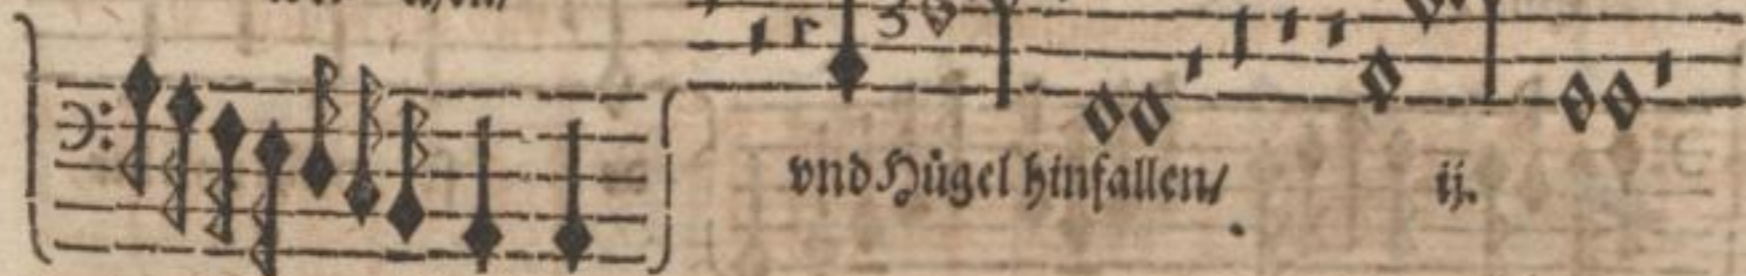 vnd Hůgel hinfallen/ ij.